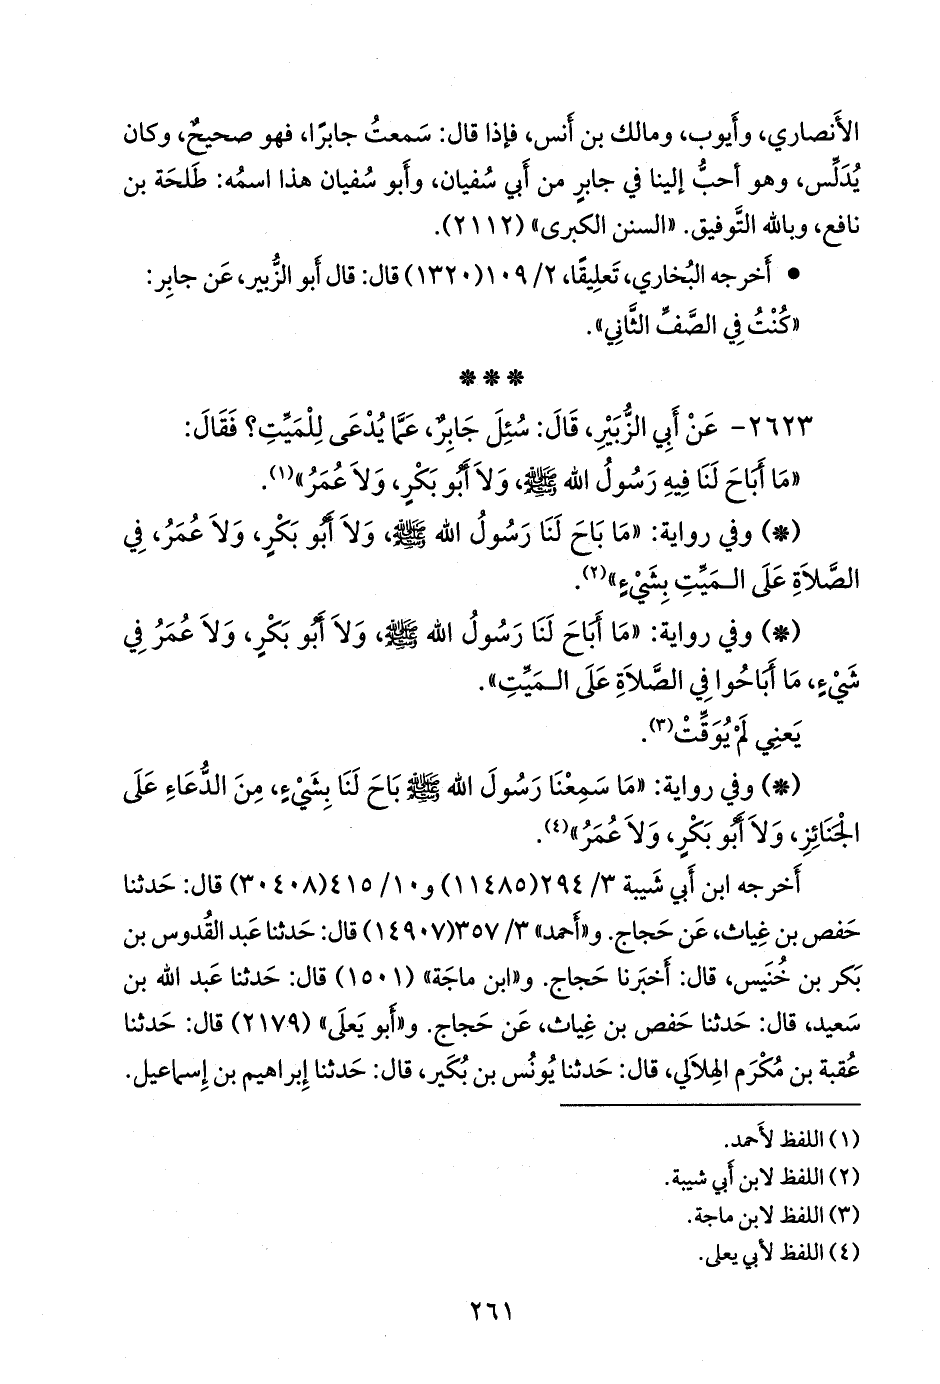 الأَنصاري، وأَيوب، ومالك بن أَنس، فإذا قال: سَمعتُ جابرًا، فهو صحيحٌ، وكان
يُدَلِّس، وهو أحبُّ إلينا في جابرٍ من أَبي سُفيان، وأَبو سُفيان هذا اسمُه: طَلحَة بن
نافع، وبالله التَّوفيق. «السنن الكبرى» (٢١١٢).
• أَخرجه البُخاري، تَعلِيقًا، ٢/ ١٠٩(١٣٢٠) قال: قال أَبو الزُّبير، عَن جابِر:
«كُنْتُ فِي الصَّفِّ الثَّانِي».
* * *
٢٦٢٣- عَنْ أَبِي الزُّبَيْرِ، قَالَ: سُئِلَ جَابِرٌ، عَمَّا يُدْعَى لِلْمَيِّتِ؟ فَقَالَ:
«مَا أَبَاحَ لَنَا فِيهِ رَسُولُ الله ﷺ، وَلاَ أَبُو بَكْرٍ، وَلاَ عُمَرُ»(١).
(*) وفي رواية: «مَا بَاحَ لَنَا رَسُولُ الله ﷺ، وَلاَ أَبُو بَكْرٍ، وَلاَ عُمَرُ، فِي
الصَّلاَةِ عَلَى الـمَيِّتِ بِشَيْءٍ»(٢).
(*) وفي رواية: «مَا أَبَاحَ لَنَا رَسُولُ الله ﷺ، وَلاَ أَبُو بَكْرٍ، وَلاَ عُمَرُ فِي
شَيْءٍ، مَا أَبَاحُوا فِي الصَّلاَةِ عَلَى الـمَيِّتِ».
يَعنِي لَمْ يُوَقِّتْ(٣).
(*) وفي رواية: «مَا سَمِعْنَا رَسُولَ الله ﷺ بَاحَ لَنَا بِشَيْءٍ، مِنَ الدُّعَاءِ عَلَى
الْجَنَائِزِ، وَلاَ أَبُو بَكْرٍ، وَلاَ عُمَرُ»(٤).
أَخرجه ابن أَبي شَيبة ٣/ ٢٩٤(١١٤٨٥) و١٠/ ٤١٥(٣٠٤٠٨) قال: حَدثنا
حَفص بن غِياث، عَن حَجاج. و«أَحمد» ٣/ ٣٥٧(١٤٩٠٧) قال: حَدثنا عَبد القُدوس بن
بَكر بن خُنَيس، قال: أَخبَرنا حَجاج. و«ابن ماجَة» (١٥٠١) قال: حَدثنا عَبد الله بن
سَعيد، قال: حَدثنا حَفص بن غِياث، عَن حَجاج. و«أَبو يَعلَى» (٢١٧٩) قال: حَدثنا
عُقبة بن مُكْرَم الهِلاَلي، قال: حَدثنا يُونُس بن بُكَير، قال: حَدثنا إِبراهيم بن إِسماعيل.
(١) اللفظ لأَحمد.
(٢) اللفظ لابن أَبي شيبة.
(٣) اللفظ لابن ماجة.
(٤) اللفظ لأَبي يعلى.
٢٦١